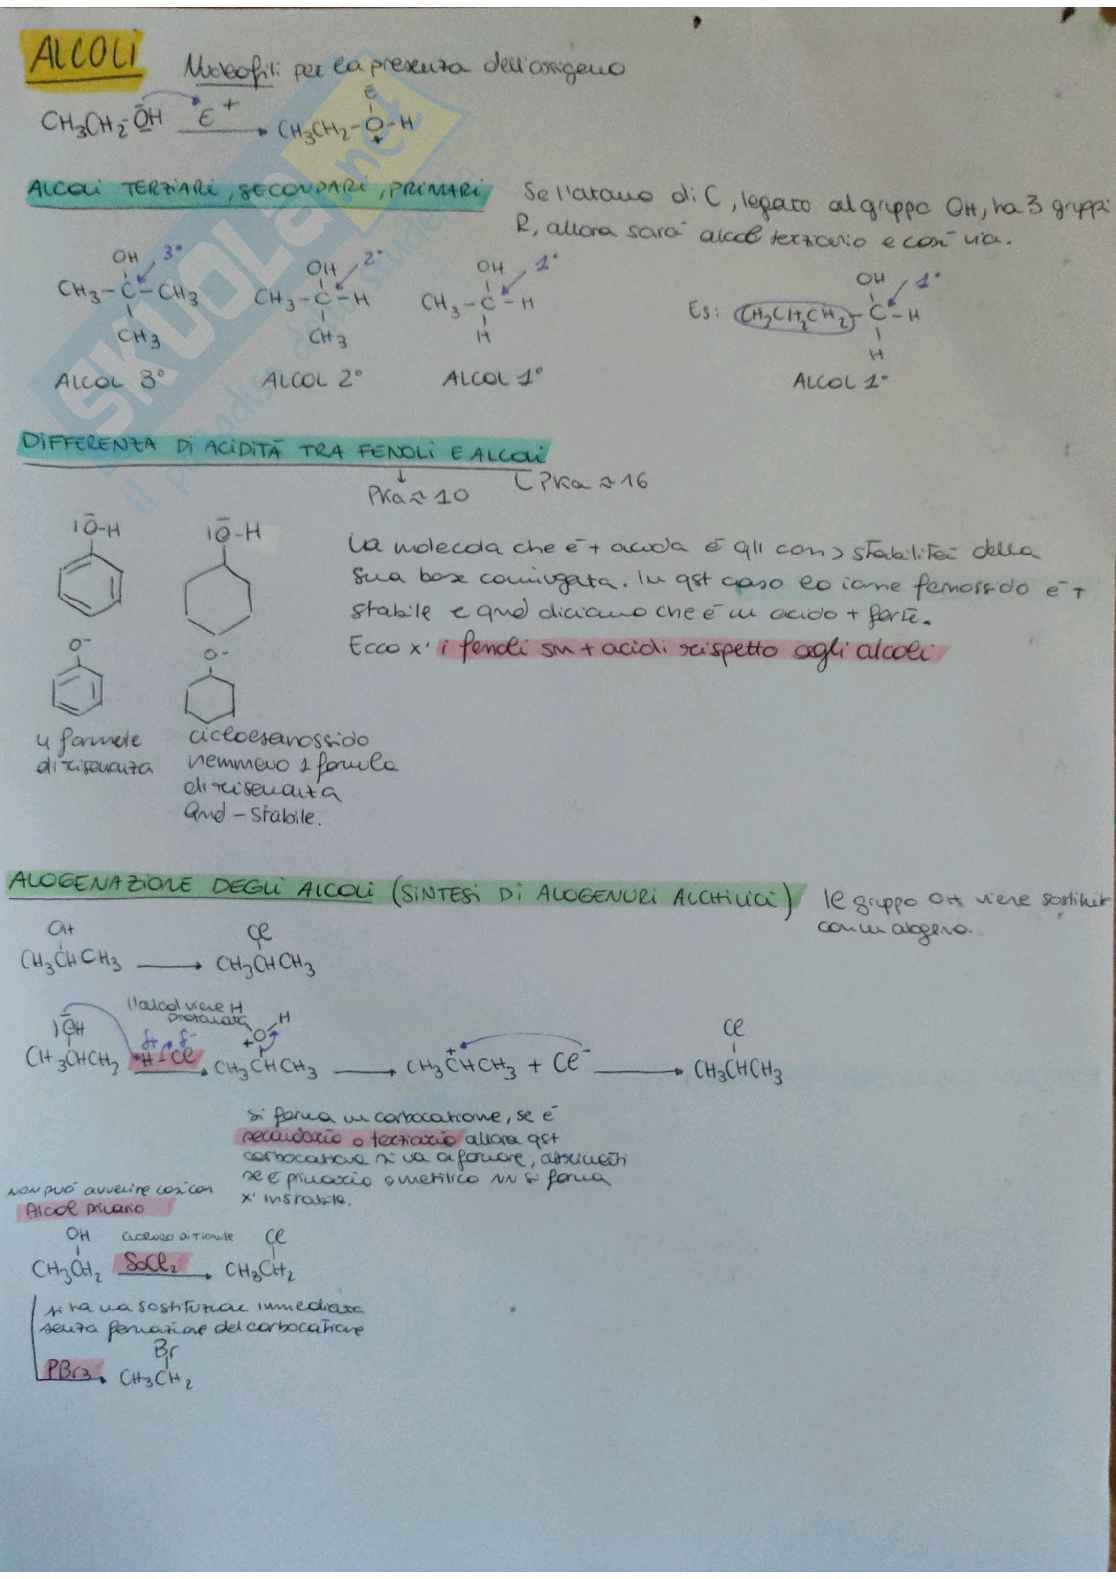 ALCOLI Nucleofili per la presenza dell'ossigeno
CH3CH2-OH E+ → CH3CH2-O-H
E
+
ALCOLI TERZIARI, SECONDARI, PRIMARI Se l'atomo di C, legato al gruppo OH, ha 3 gruppi
R, allora sarà alcol terziario e così via.
OH 3° OH 2° OH 1° OH 1°
CH3-C-CH3 CH3-C-H CH3-C-H Es: CH3CH2CH2-C-H
CH3 CH3 H H
ALCOL 3° ALCOL 2° ALCOL 1° ALCOL 1°
DIFFERENZA DI ACIDITÀ TRA FENOLI E ALCOLI
PKa ≈ 10 PKa ≈ 16
O-H O-H
La molecola che è + acida è qll con > stabilità della
sua base coniugata. In qst caso lo ione fenossido è +
stabile e qnd diciamo che è un acido + forte.
Ecco x' i fenoli sn + acidi rispetto agli alcoli
O- O-
4 formule
di risonanza
cicloesanossido
nemmeno 1 formula
di risonanza
Qnd - stabile.
ALOGENAZIONE DEGLI ALCOLI (SINTESI DI ALOGENURI ALCHILICI) Il gruppo OH viene sostituit
con un alogeno.
OH Cl
CH3CHCH3 → CH3CHCH3
l'alcol viene
protonato
OH δ+ δ- H + O H Cl
CH3CHCH3 H-Cl → CH3CHCH3 → CH3CHCH3 + Cl- → CH3CHCH3
+
si forma un carbocatione, se è
secondario o terziario allora qst
carbocatione si va a formare, altrimenti
se è primario o metilico nn si forma
x' instabile.
non può avvenire così con
Alcol primario
OH cloruro di tionile Cl
CH3CH2 SOCl2 → CH3CH2
si ha una sostituzione immediata
senza formazione del carbocatione
Br
PBr3 → CH3CH2
SKUOLA.net